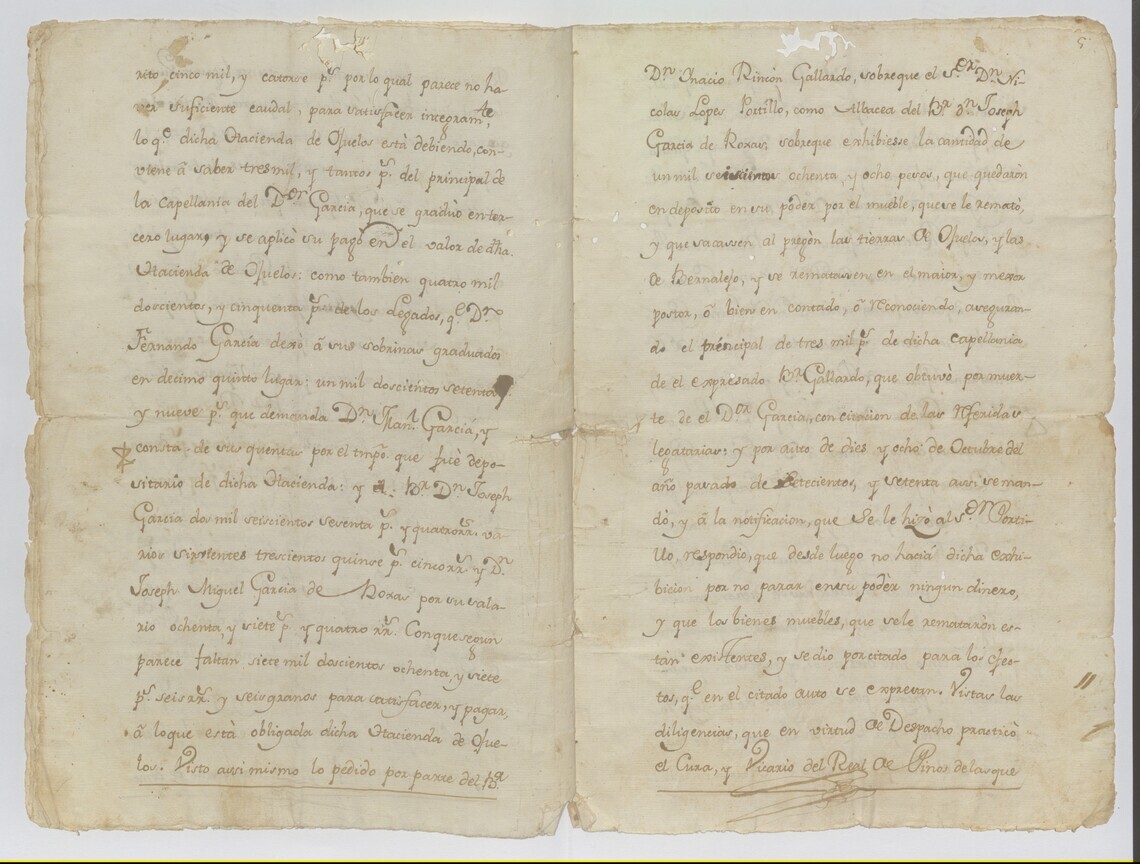 rito cinco mil, y catorse p.s por lo qual parece no ha-
ver suficiente caudal, para satisfacer integram.te
lo q.e dicha Hacienda de Ojuelos està debiendo, con-
viene â saber tres mil, y tantos p.s del principal de
la capellania del D.or Garcia, que se graduò en ter-
cero lugar, y se aplicò su pago en el valor de dha.
Hacienda de Ojuelos: como tambien quatro mil
doscientos, y cinquenta p.s de los legados, q.e D.n
Fernando Garcia dexò â sus sobrinas graduados
en decimo quinto lugar: un mil doscientos setenta
y nueve p.s que demanda D.n Man.l Garcia, y
consta de sus quentas por el tmpo. que fuè depo-
sitario de dicha Hacienda: y el B.r D.n Joseph
Garcia dos mil seiscientos sesenta p.s y quatro rr.s va-
rios sirvientes trescientos quinse p.s cinco rr.s y D.n
Joseph Miguel Garcia de Roxas por su sala-
rio ochenta, y siete p.s y quatro rr.s Con que segun
parece faltan siete mil doscientos ochenta, y siete
p.s seis rr.s y seis granos para satisfacer, y pagar,
â lo que està obligada dicha Hacienda de Ojue-
los: Visto assi mismo lo pedido por parte del B.r
5
D.n Ynacio Rincòn Gallardo, sobre que el S.or D.n Ni-
colas Lopes Portillo, como Albacea del B.r D.n Joseph
Garcia de Roxas, sobre que exhibiesse la cantidad de
un mil seiscientos ochenta, y ocho pesos, que quedaròn
en deposito en su poder por el mueble, que se le rematò,
y que sacassen al pregòn las tierras de Ojuelos, y las
de Bernalejo, y se rematassen en el maior, y mexor
postor, ô bien en contado, ô reconociendo, aseguran-
do el principal de tres mil p.s de dicha capellania
de el expresado B.r Gallardo, que obtuvò por muer-
te de el D.or Garcia, con citacion de las referidas
legatarias: y por auto de dies y ocho de Octubre del
año pasado de setecientos, y setenta assi se man-
dò, y â la notificacion, que se le hizò al S.or Porti-
llo, respondio, que desde luego no hacia dicha exhi-
bicion por no parar en su podèr ningun dinero,
y que los bienes muebles, que se le remataròn es-
tàn existentes, y se dio por citado para los efec-
tos, q.e en el citado auto se expresan. Vistas las
diligencias, que en virtud de Despacho practicò
el Cura, y Vicario del Real de Pinos de las que